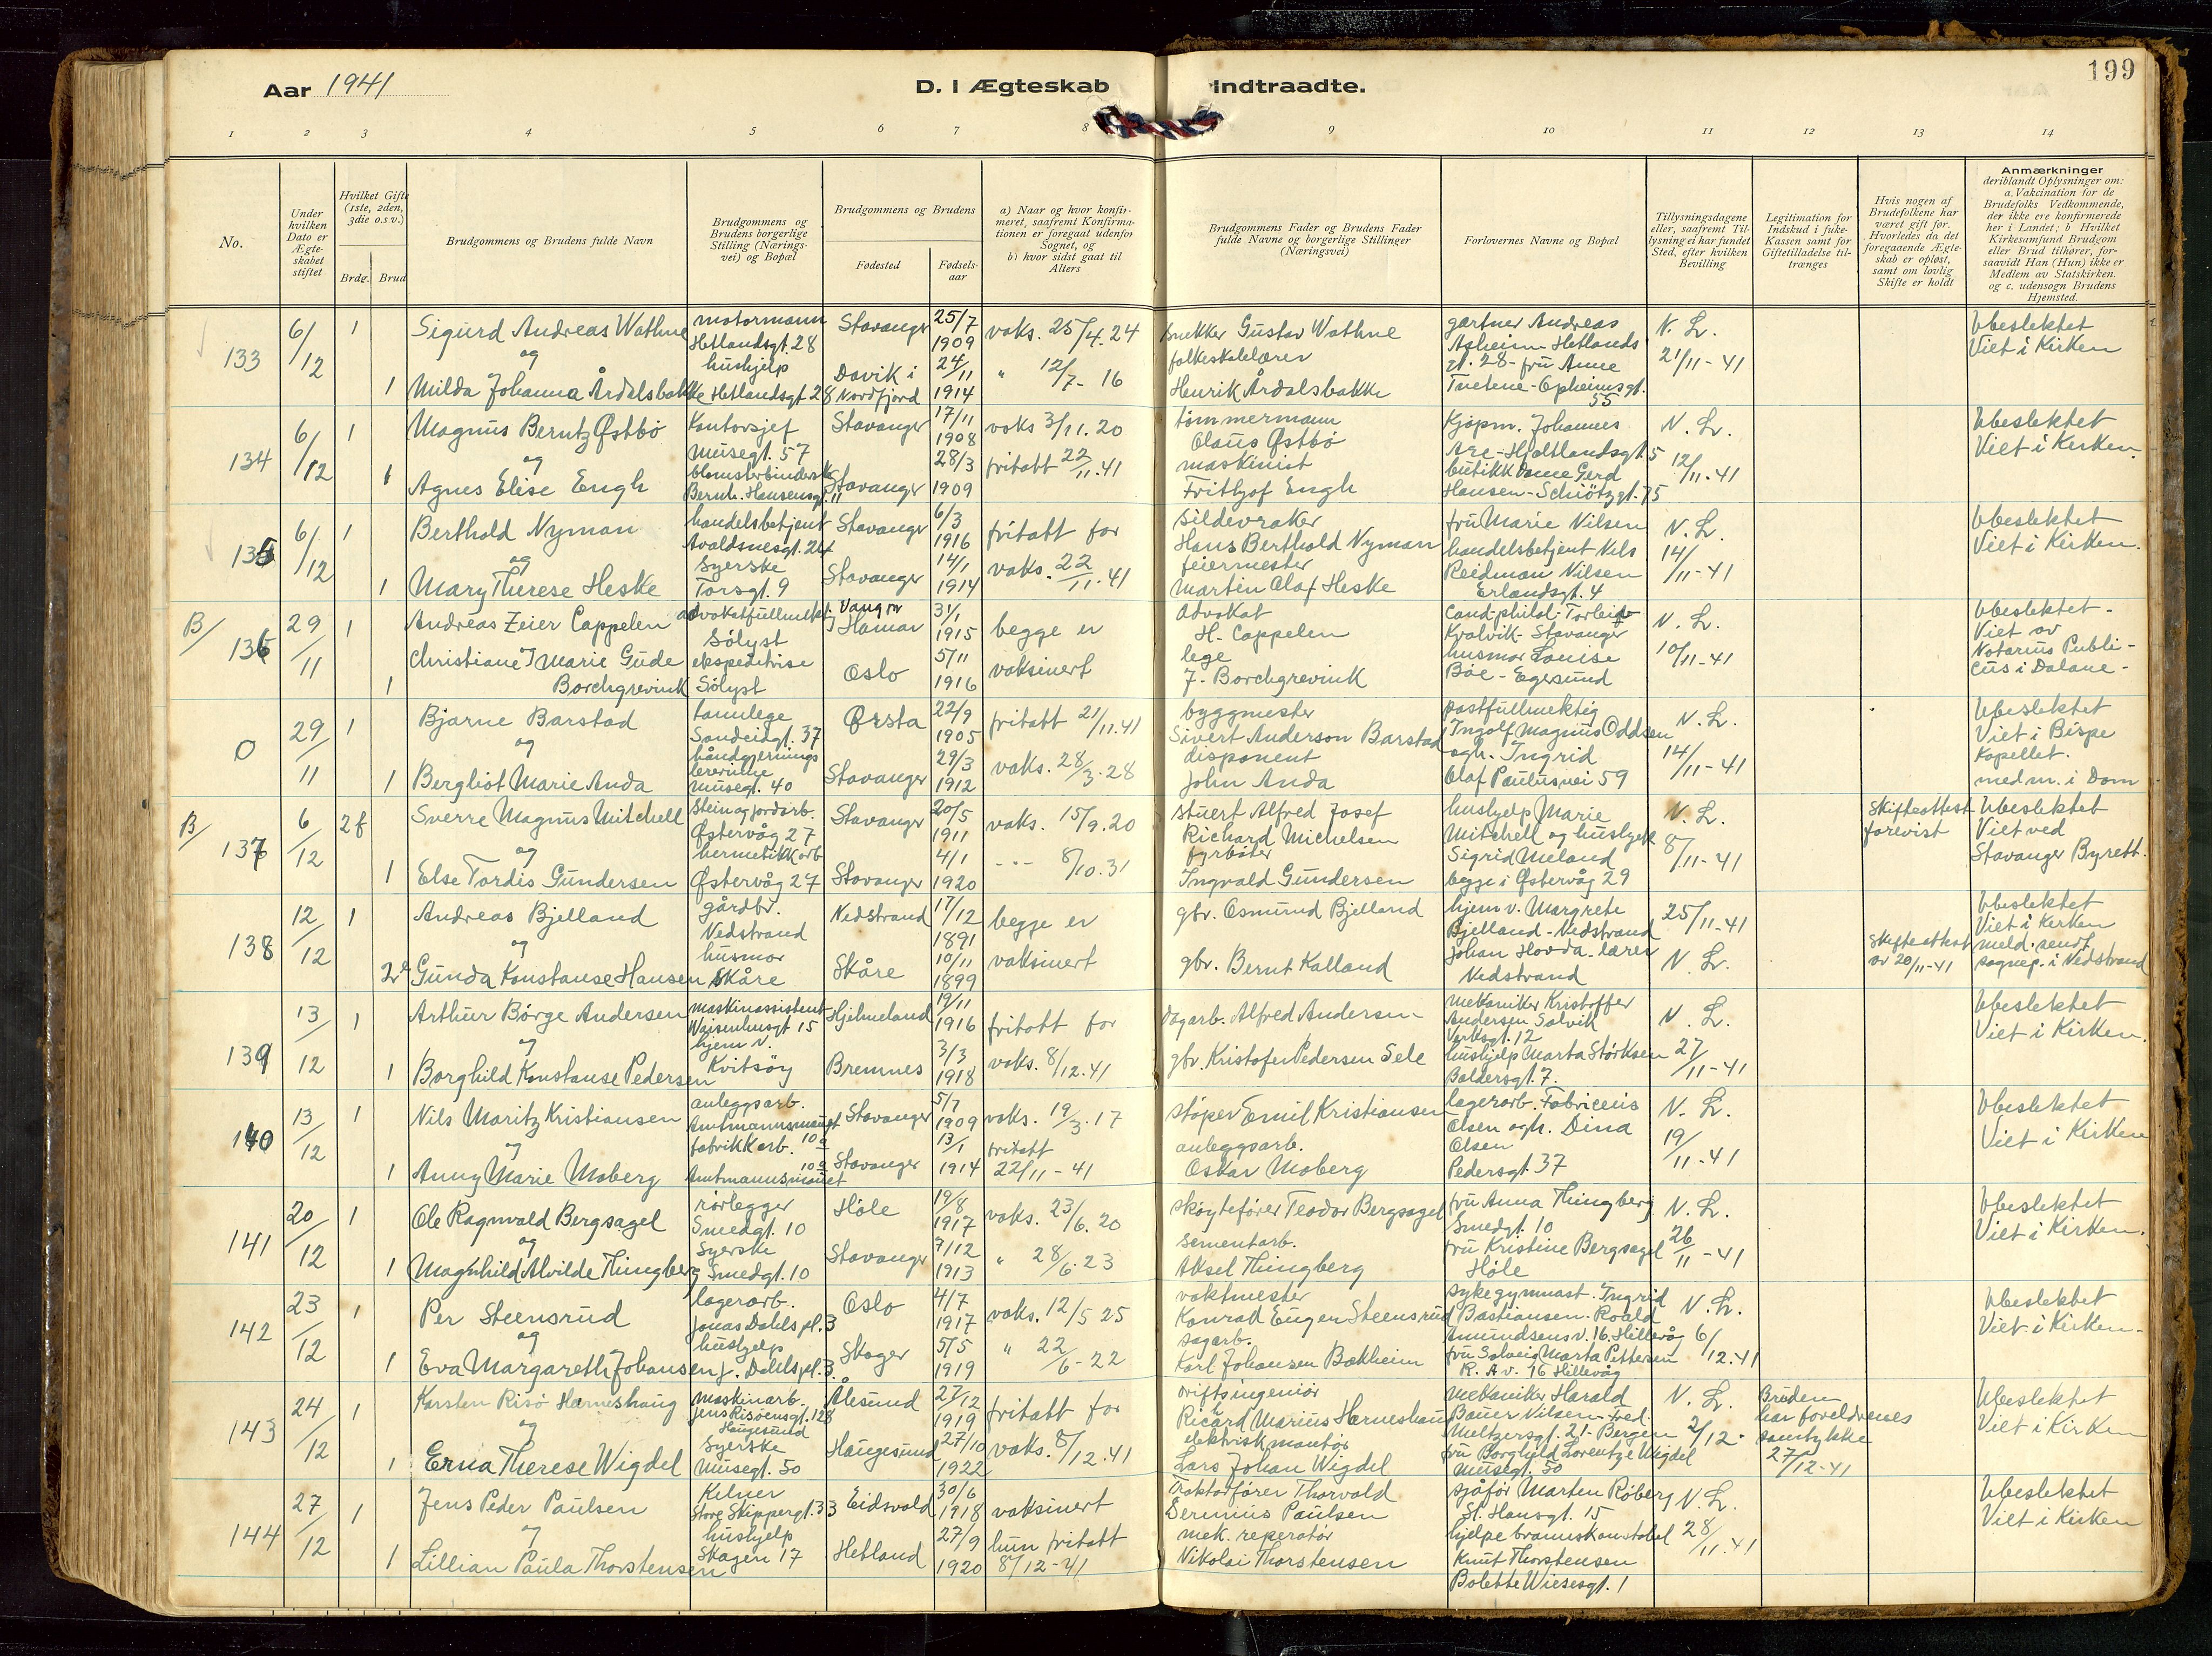 199
Aar 1941
D. I Ægteskab Indtraadte.
1 2 3 4 5 6 7 8 9 10 11 12 13 14
No.
Under hvilken Dato er Ægteskabet stiftet
Hvilket Gifte (1ste, 2den, 3die o.s.v.)
Brdg. Brud
Brudgommens og Brudens fulde Navn
Brudgommens og Brudens borgerlige Stilling (Næringsvei) og Bopæl
Brudgommens og Brudens
Fødested
Fødselsaar
a) Naar og hvor konfirmeret, saafremt Konfirmationen er foregaat udenfor Sognet, og
b) hvor sidst gaat til Alters
Brudgommens Fader og Brudens Fader fulde Navne og borgerlige Stillinger (Næringsvei)
Forlovernes Navne og Bopæl
Tillysningsdagene eller, saafremt Tillysning ei har fundet Sted, efter hvilken Bevilling
Legitimation for Indskud i fuke-Kassen samt for Giftetilladelse tiltrænges
Hvis nogen af Brudefolkene har været gift før. Hvorledes da det foregaaende Ægteskab er opløst, samt om lovlig Skifte er holdt
Anmærkninger
deriblandt Oplysninger om: a. Vakcination for de Brudefolks Vedkommende, der ikke ere konfirmerede her i Landet; b Hvilket Kirkesamfund Brudgom eller Brud tilhører, forsaavidt Han (Hun) ikke er Medlem av Statskirken. og c. udensogn Brudens Hjemsted.
133 6/12 1 Sigurd Andreas Wathne motormann Hetlandsgt. 28 Stavanger 25/7 1909 vaks. 25/4. 24 snekker Gustav Wathne gartner Andreas Asheim Hetlandsgt. 28 - fru Anne Tvetene - Opheimsgt. 55 N. L. 21/11-41 Ubeslektet Viet i Kirken
og
1 Milda Johanna Årdalsbakke hushjelp Hetlandsgt. 28 Davik i Nordfjord 24/11 1914 " 12/7- 16 folkeskolelærer Henrik Årdalsbakke
134 6/12 1 Magnus Berntz Østbö Kontorsjef Musegt. 57 Stavanger 17/11 1908 vaks 3/11. 20 tömmermann Olaus Østbö Kjöpm. Johannes Are - Hjeltlandsgt. 5 butikkdame Gerd Hansen - Schiötzgt. 75 N. L. 12/11-41 Ubeslektet Viet i Kirken.
og
1 Agnes Elise Engh blomsterbinderske Bernh. Hansensgt. 11 Stavanger 28/3 1909 fritatt 22/11.41 maskinist Frithjof Engh
135 6/12 1 Berthold Nyman handelsbetjent Avaldsnesgt. 24 Stavanger 6/3 1916 fritatt for sildevraker Hans Berthold Nyman fru Marie Nilsen handelsbetjent Nils Reidman Nilsen Erlandsgt. 4 N. L. 14/11-41 Ubeslektet Viet i Kirken.
og
1 Mary Therese Heske syerske Torsgt. 9 Stavanger 14/1 1914 vaks. 22/11.41 feiermester Martin Olaf Heske
B/ 136 29/11 1 Andreas Zeier Cappelen advokatfullmekt. Sölyst Vang pr Hamar 31/1 1915 begge er Advokat H. Cappelen Cand. philol. Torleiv Kvalvik - Stavanger husmor Louise Böe - Egersund N. L. 10/11-41 Ubeslektet - Viet av Notarius Publicus i Dalane -
1 Christiane J Marie Gude Borchgrevink ekspeditrise Sölyst Oslo 5/11 1916 vaksinert lege J. Borchgrevink
0 29/11 1 Bjarne Barstad tannlege Sandeidgt. 37 Ørsta 22/9 1905 fritatt 21/11.41 byggmester Sivert Anderson Barstad postfullmektig Ingolf Magnus Oddsen ogh. Ingrid Olaf Paulusvei 59 N. L. 14/11-41 Ubeslektet Viet i Bispe Kapellet. med m. i Dom
og
1 Bergliot Marie Anda håndgjernings lererinne Musegt. 40 Stavanger 29/3 1912 vaks. 28/3.28 disponent John Anda
B/ 137 6/12 2f Sverre Magnus Mitchell stein og jordarb. Østervåg 27 Stavanger 20/5 1911 vaks. 15/9.20 stuert Alfred Josef Richard Michelsen hushjelp Marie Mitchell og hushjelp Sigrid Meland begge i Østervåg 29 N. L. 8/11-41 Skifteattest forevist Ubeslektet Viet ved Stavanger Byrett.
og
1 Else Tordis Gundersen hermetikkarb Østervåg 27 Stavanger 4/1 1920 8/10.31 fyrböter Ingvald Gundersen
138 12/12 1 Andreas Bjelland gårdbr. Nedstrand Nedstrand 17/12 1891 begge er gbr. Osmund Bjelland hjem v. Margrete Bjelland - Nedstrand Johan Hovda - lærer Nedstrand 25/11-41 N. L. Skifteattest av 20/11-41 Ubeslektet Viet i Kirken meld. sendt sognep. i Nedstrand
og
2 Gunda Konstanse Hansen husmor Skåre Skåre 10/11 1899 vaksinert gbr. Bernt Kalland
139 13/12 1 Arthur Börge Andersen Maskinassistent Vaisenhusgt 15 Hjelmeland 19/11 1916 fritatt for dagarb. Alfred Andersen Mekaniker Kristoffer Andersen Solvik Verksgt. 12 hushjelp Marta Störksen Baldersgt. 7. N. L. 27/11-41 Ubeslektet Viet i Kirken.
og
1 Borghild Konstanse Pedersen hjem v. Kvitsöy Bremnes 3/3 1918 vaks. 8/12.41 gbr. Kristofer Pedersen Sele
140 13/12 1 Nils Maritz Kristiansen anleggsarb. Amtmannsmouet 10a Stavanger 5/7 1909 vaks. 19/3.17 stöper Emil Kristiansen lagerarb. Fabricius Olsen ogh. Dina Olsen Pedersgt. 37 N. L. 19/11-41 Ubeslektet Viet i Kirken
og
1 Anny Marie Moberg fabrikkarb. Amtmannsmouet 10a Stavanger 13/1 1914 fritatt 22/11-41 anleggsarb. Oskar Moberg
141 20/12 1 Ole Ragnvald Bergsagel rörlegger Smedgt. 10 Höle 19/8 1917 vaks. 23/6.20 sköyteförer Teodor Bergsagel fru Anna Thingberg Smedgt. 10 fru Kristine Bergsagel Höle N. L. 26/11-41 Ubeslektet Viet i Kirken.
og
1 Magnhild Alvilde Thingberg Syerske Smedgt. 10 Stavanger 7/12 1913 " 28/6.23 sementarb. Aksel Thingberg
142 23/12 1 Per Steensrud lagerarb. Jonas Dahls pl. 3 Oslo 4/7 1917 vaks. 12/5 25 vaktmester Konrad Eugen Steensrud sykegymnast. Ingrid Bastiansen - Roald Amundsens v. 16. Hillevåg fru Solveig Marta Pettersen R. A v. 16 Hillevåg N. L. 6/12.41 Ubeslektet Viet i Kirken.
og
1 Eva Margareth Johansen hushjelp J. Dahls pl. 3. Skoger 5/5 1919 " 22/6-22 sagarb. Karl Johansen Bakheim
143 24/12 1 Karsten Risö Harneshaug maskinarb. Jens Risöensgt. 128 Haugesund Ålesund 27/12 1919 fritatt for driftsingeniör Richard Marius Harneshaug Mekaniker Harald Bauer Nilsen - Fred. Meltzersgt. 21 - Bergen fru Borghild Lorentze Wigdel Musegt. 50 N. L. 2/12. Bruden har foreldrenes samtykke 27/12-41 Ubeslektet Viet i Kirken
og
1 Erna Therese Wigdel Syerske Musegt. 50 Haugesund 27/10 1922 vaks. 8/12.41 elektrisk montör Lars Johan Wigdel
144 27/12 1 Jens Peder Paulsen Kelner Store Skippergt. 33 Eidsvold 30/6 1918 vaksinert Traktorförer Thorvald Dermius Paulsen sjåför Marten Röberg St. Hansgt. 15 hjelpe brannskonstabel Knut Thorstensen Bolette Wiesesgt. 1 N. L. 28/11.41 Ubeslektet Viet i Kirken
og
1 Lillian Paula Thorstensen hushjelp Skagen 17 Hetland 27/9 1920 hun fritatt 8/12-41 mek. reperatör Nikolai Thorstensen